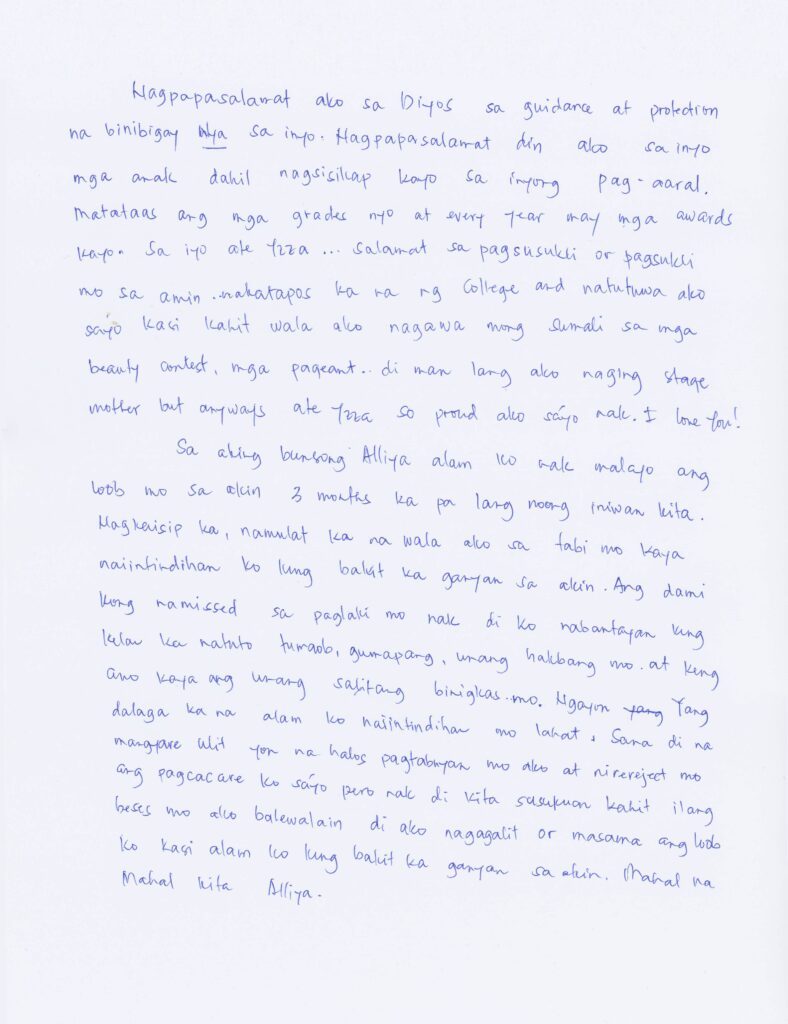 Nagpapasalamat ako sa Diyos sa guidance at protection
na binibigay Nya sa inyo. Nagpapasalamat din ako sa inyo
mga anak dahil nagsisikap kayo sa inyong pag-aaral.
Matataas ang mga grades nyo at every year may mga awards
kayo. Sa iyo ate Yzza ... salamat sa pagsusukli or pagsukli
mo sa amin.. nakatapos ka na ng College and natutuwa ako
sáyo kasi kahit wala ako nagawa mong sumali sa mga
beauty contest, mga pageant.. di man lang ako naging stage
mother but anyways ate Yzza so proud ako sáyo nak. I love you!
Sa aking bunsong Alliya alam ko nak malayo ang
loob mo sa akin 3 months ka pa lang noong iniwan kita.
Nagkaisip ka, namulat ka na wala ako sa tabi mo kaya
naiintindihan ko kung bakit ka ganyan sa akin. Ang dami
kong namissed sa paglaki mo nak di ko nabantayan kung
kelan ka natuto tumaob, gumapang, unang hakbang mo. at kung
ano kaya ang unang salitang binigkas mo. Ngayon yang Yang
dalaga ka na alam ko naiintindihan mo lahat. Sana di na
mangyare ulit yon na halos pagtabuyan mo ako at nirereject mo
ang pagcacare ko sáyo pero nak di kita susukuan kahit ilang
beses mo ako balewalain di ako nagagalit or masama ang loob
ko kasi alam ko kung bakit ka ganyan sa akin. Mahal na
Mahal kita Alliya.